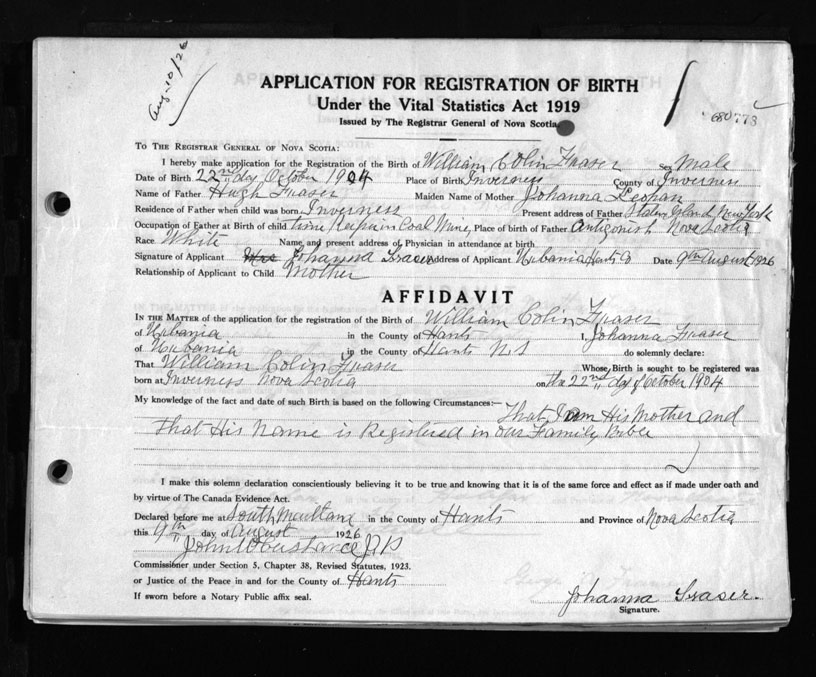 Aug. 10/26
APPLICATION FOR REGISTRATION OF BIRTH
Under the Vital Statistics Act 1919
Issued by The Registrar General of Nova Scotia
680773
To The Registrar General of Nova Scotia:
I hereby make application for the Registration of the Birth of William Colin Fraser Sex Male
Date of Birth 22nd day October 1904 Place of Birth Inverness County of Inverness
Name of Father Hugh Fraser Maiden Name of Mother Johanna
Residence of Father when child was born Inverness Present address of Father Staten Island New York
Occupation of Father at Birth of child time Keeper in Coal Mine Place of birth of Father Antigonish Nova Scotia
Race White Name and present address of Physician in attendance at birth
Signature of Applicant Mrs Johanna Fraser Address of Applicant Urbania Hants Co Date 9th August 1926
Relationship of Applicant to Child Mother
AFFIDAVIT
In the Matter of the application for the registration of the Birth of William Colin Fraser
of Urbania in the County of Hants I, Johanna Fraser
of Urbania in the County of Hants N.S do solemnly declare:
That William Colin Fraser Whose Birth is sought to be registered was
born at Inverness Nova Scotia on the 22nd day of October 1904
My knowledge of the fact and date of such Birth is based on the following Circumstances:— That I am His Mother and
that His Name is Registered in our Family Bible
I make this solemn declaration conscientiously believing it to be true and knowing that it is of the same force and effect as if made under oath and
by virtue of The Canada Evidence Act.
Declared before me at South in the County of Hants and Province of Nova Scotia
this 9th day of August 1926
John J.P
Commissioner under Section 5, Chapter 38, Revised Statutes, 1923.
or Justice of the Peace in and for the County of Hants
If sworn before a Notary Public affix seal.
Johanna Fraser.
Signature.